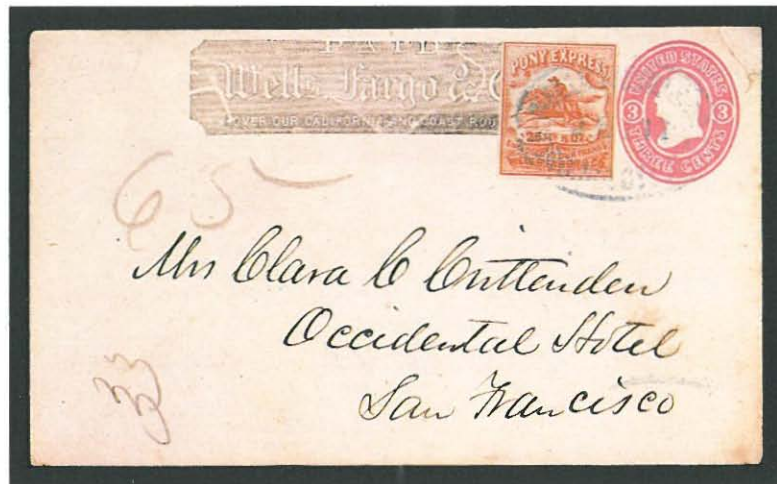 PAID
Wells, Fargo & C
OVER OUR CALIFORNIA AND COAST ROU
PONY EXPRESS
UNITED STATES
3 3
THREE CENTS
65
Mrs Clara C Crittenden
Occidental Hotel
San Francisco